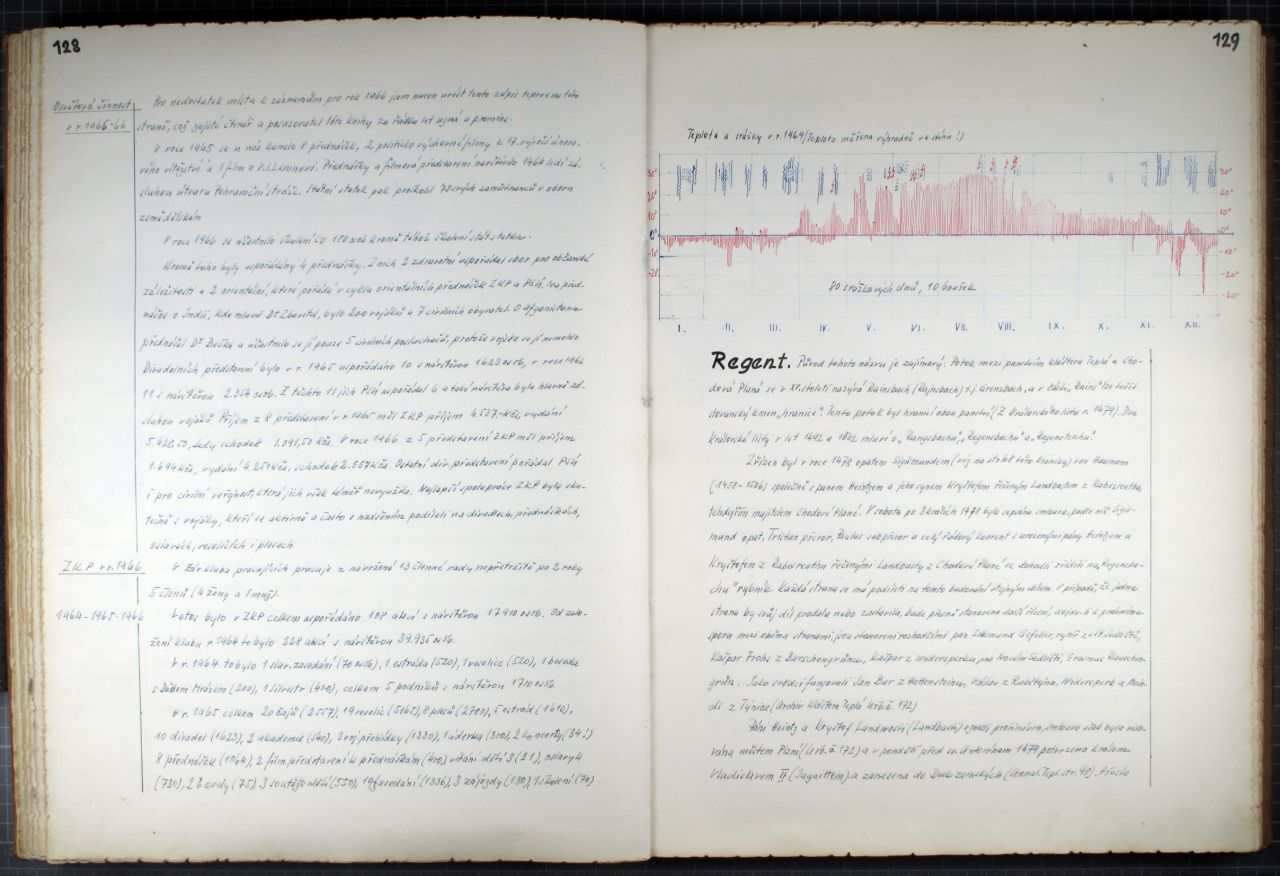 128
Osvětová činnost
v r. 1965-66
Pro nedostatek místa k záznamům pro rok 1966 jsem nucen uvést tento zápis teprve na této
straně, což zajisté čtenář a posuzovatel této knihy za řádku let uzná a promine.
V roce 1965 se u nás konalo 8 přednášek, 2 politicko výchovné filmy k 17. výročí únoro-
vého vítězství a 1 film o V.I. Leninovi. Přednášky a filmová představení navštívilo 1964 lidí zá-
sluhou útvaru Pohraniční stráže. Státní statek pak proškolil svých zaměstnanců v oboru
zemědělském.
V roce 1966 se zúčastnilo školení ČO 180 osob kromě téhož školení stát. statku.
Kromě toho byly uspořádány 4 přednášky. Z nich 2 zdravotní uspořádal sbor pro občanské
záležitosti a 2 orientální, které pořádá v cyklu orientálních přednášek ZKP a PSíč. Na před-
nášce o Indii, kde mluvil Dr Zbavitel, bylo 200 vojáků a 7 civilních obyvatel. O Afganistanu
přednášel Dr Bečka a zúčastnilo se jí pouze 5 civilních posluchačů, protože vojsko se jí nemohlo
Divadelních představení bylo v r. 1965 uspořádáno 10 s návštěvou 1623 osob, v roce 1966
11 s návštěvou 2.354 osob. Z těchto 11 jich uspořádal 6 a také návštěva byla hlavně zá-
sluhou vojáků. Příjem z 8 představení v r. 1965 měl ZKP příjem 4.537,-Kčs, vydání
5.628,50, tedy schodek 1.091,50 Kčs. V roce 1966 z 5 představení ZKP měl příjem
1.694 Kčs, vydání 4.251 Kčs, schodek 2.557 Kčs. Ostatní div. představení pořádal
i pro civilní veřejnost, která jich však téměř nevyužila. Nejlepší spolupráce ZKP byla sku-
tečně s vojáky, kteří se aktivně a často s nadšením podíleli na divadlech, přednáškách,
oslavách, veselicích i plesech.
ZKP v r. 1966
V Záv. klubu pracujících pracuje z navržené 13 členné rady nepřetržitě po 2 roky
5 členů (4 ženy a 1 muž).
1964-1965-1966
Letos bylo v ZKP celkem uspořádáno 188 akcí s návštěvou 17910 osob. Od zalo-
žení klubu v r. 1964 to bylo 228 akcí s návštěvou 39.935 osob.
V r. 1964 to bylo 1 slav. zasedání (70 osob), 1 estráda (520), 1 veselice (520), 1 beseda
s Dědem Mrázem (200), 1 silvestr (400), celkem 5 podniků s návštěvou 1710 osob.
V r. 1965 celkem 20 čajů (2557), 19 veselic (5165), 8 plesů (2780), 5 estrád (1610),
10 divadel (1623), 2 akademie (540), 3 voj. přehlídky (1330), 1 úderka (300), 2 koncerty (34!)
8 přednášek (1064), 2 film. představení k přednáškám (400), vítání dětí 3 (21), oslavy 4
(730), 2 besedy (75), 3 soutěže dětí (550), 19 zasedání (1336), 3 zájezdy (130), 1 školení (70)
129
Teplota a srážky v r. 1964 /Teplota měřena výhradně ve stínu !)
30° 30°
20° 20°
10° 10°
0° 0°
-10° -10°
-20° -20°
-30°
80 srážkových dnů, 10 bouřek
I. II. III. IV. V. VI. VII. VIII. IX. X. XI. XII.
Regent. Původ tohoto názvu je zajímavý: Potok mezi panstvím kláštera Teplá a Cho-
dová Planá se v XV. století nazývá Rainsbach (Rajnsbach) t.j. Grenzbach, a v části „Rains" lze tušit
slovanský kmen „hranice". Tento potok byl hranicí obou panství, (Z královského listu r. 1479). Dva
královské listy v let 1492 a 1502 mluví o „Rangsbachu", „Regensbachu" a „Regensteichu".
Zřízen byl v roce 1478 opatem Sigismundem (viz na str. 68 této kroniky) von Hausmann
(1458-1506) společně s panem Heintzem a jeho synem Kryštofem řečeným Landwustem z Rabesrenthu,
tehdejším majitelem Chodové Plané. V sobotu po 3 králích 1478 byla sepsána smlouva, podle níž Sigis-
mund opat, Tristan převor, Paulus subpřevor a celý řádový konvent s urozenými pány Heintzem a
Kryštofem z Rabesrenthu řečenými Landwusty z Chodové Plané se dohodli zříditi na „Regenspa-
chu" rybník. Každá strana se má podíleti na tomto budování stejným dílem. V případě, že jedna
strana by svůj díl prodala nebo zastavila, bude přesně stanoveno další řízení, dojde-li k právnímu
sporu mezi oběma stranami, jsou stanoveni rozhodčími pan Zikmund Gefeller, rytíř z st. Sedliště,
Kašpar Frohs z Burschengrünu, Kašpar z Weidersperku, na Novém Sedlišti, Erasmus Rauschen-
grün. Jako svědci fungovali Jan Bar z Hettensteinu, Václav z Rabštejna, Weidersperk a Mein-
dl z Týnice (Archiv Kláštera Teplá Urb. č. 172)
Páni Heintz a Kryštof Landwusti (Landbach)
vána městem Planí (Urb. č. 172) a v pondělí před sv. Antonínem 1479 potvrzena králem
Vladislavem II (Jagaittem) a zanesena do Desk zemských (Annal. Tepl. str. 98). Přesto